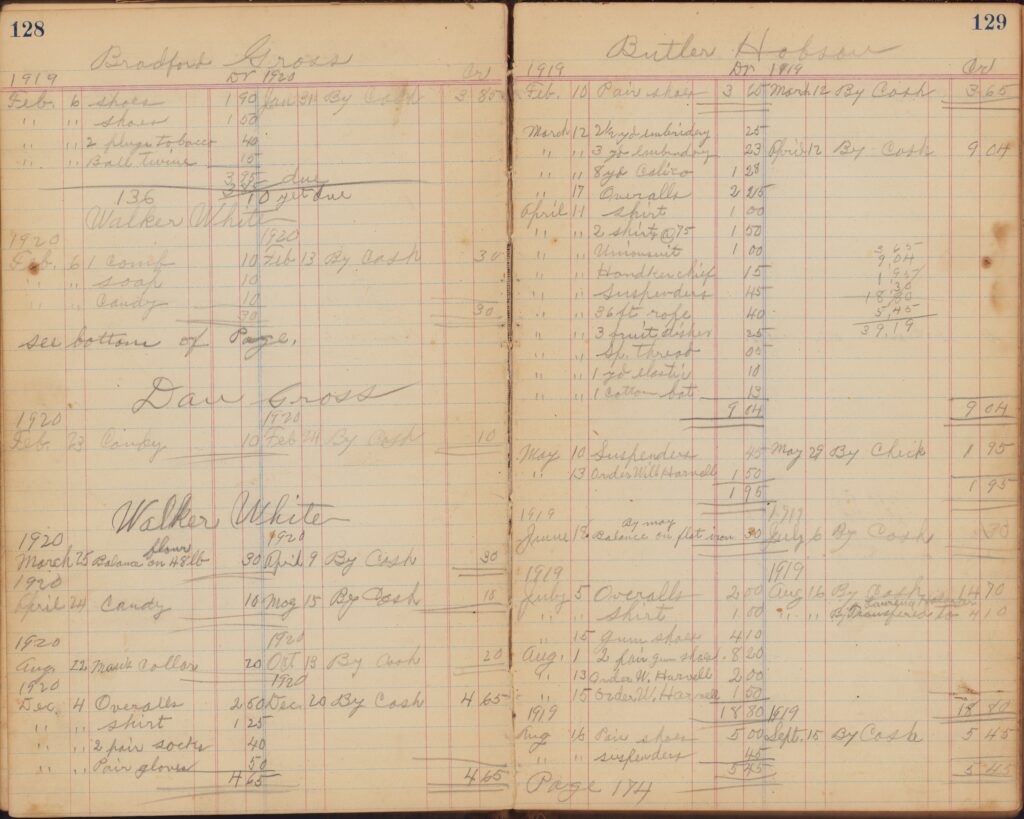 128
Bradford Gross
1919 Dr 1920 Cr
Feb. 6 shoes 1 90 Jan 31 By Cash 3 85
" " shoes 1 50
" " 2 plugs tobacco 40
" " Ball twine 15
3 95 due
136 10 yet due
Walker White
1920 1920
Feb. 6 1 Comb 10 Feb 13 By Cash 30
" " soap 10
" " Candy 10
30 30
see bottom of Page.
Dan Gross
1920 1920
Feb. 23 10 Feb 24 By Cash 10
Walker White
1920 1920
March 25 Balance on 48 lb flour 30 April 9 By Cash 30
1920
April 24 Candy 10 May 15 By Cash 10
1920 1920
Aug. 22 Collar 20 Oct 13 By Cash 20
1920 1920
Dec. 4 Overalls 2 50 Dec. 20 By Cash 4 65
" " shirt 1 25
" " 2 pair socks 40
" " Pair gloves 50
4 65 4 65
129
Butler Hobson
1919 Dr 1919 Cr
Feb. 10 Pair shoes 3 65 March 12 By Cash 3 65
March 12 2½ yd embridery 25
" " 3 yd embridery 23 April 12 By Cash 9 04
" " 8 yd Calico 1 28
" 17 Overalls 2 25
April 11 Shirt 1 00
" " 2 shirts @ 75 1 50
" " Unionsuit 1 00
" " Handkerchief 15
" " Suspenders 45
" " 36 ft rope 40
" " 3 fruit dishes 25
" " Sp. thread 05
" " 1 yd elastic 10
" " 1 Cotton bat 13
9 04 9 04
3,65
9,04
1,95
,30
18,80
5,45
39,19
May 10 Suspenders 45 May 29 By Check 1 95
" 13 Order Will Harvell 1 50
1 95 1 95
1919 1919
June 18 Balance on flat iron By may 30 July 6 By Cash 30
1919 1919
July 5 Overalls 2 00 Aug 16 By Cash 14 70
" " Shirt 1 00 " " By Transfered to 4 10
" 15 gum shoes 4 10
Aug. 1 2 pair gum shoes 8 20
" 13 Order W. Harvell 2 00
" 15 Order W. Harvell 1 50
1919 18 80 1919 18 80
Aug 16 Pair shoes 5 00 Sept. 15 By Cash 5 45
" " suspenders 45
5 45 5 45
Page 174